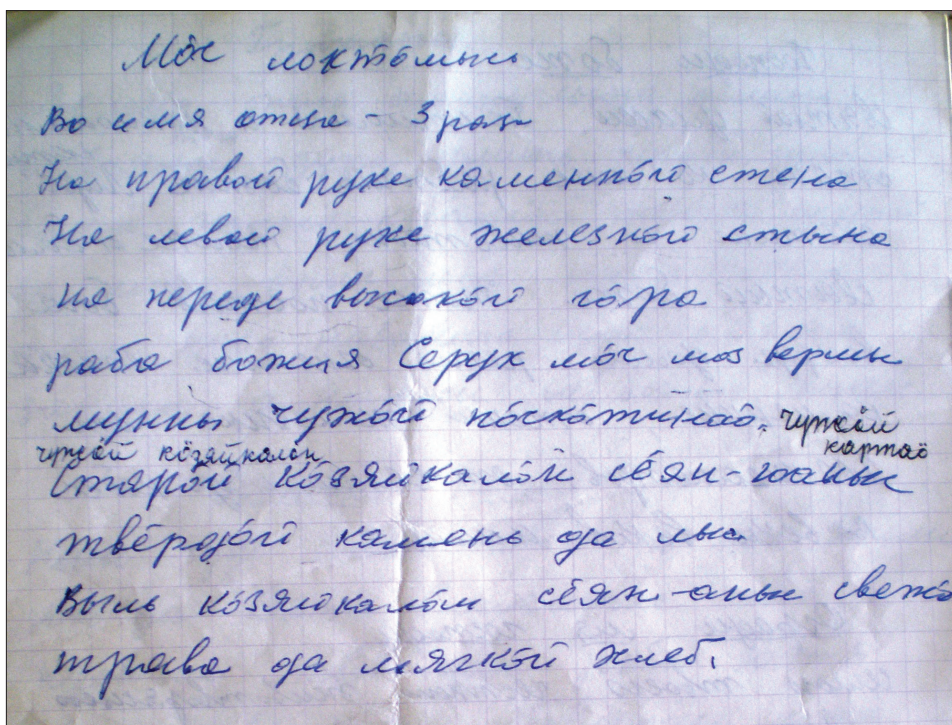 Мӧс локтӧмысь
Во имя отца - 3 раз
На правой руке каменнӧй стена
На левой руке железнӧй стына
на переде высокӧй гӧра
раба божия Серук мӧс мэз вермы
мунны чужӧй пӧскӧтинаӧ, чужӧй картаӧ
чужӧй кӧзяйкалӧн
Старӧй кӧзяйкалӧн сёян-юаныс
твёрдӧй камень да лыс
Выль кӧзяйкалӧн сёян-аныс свежӧ
трава да мягкӧй хлеб.